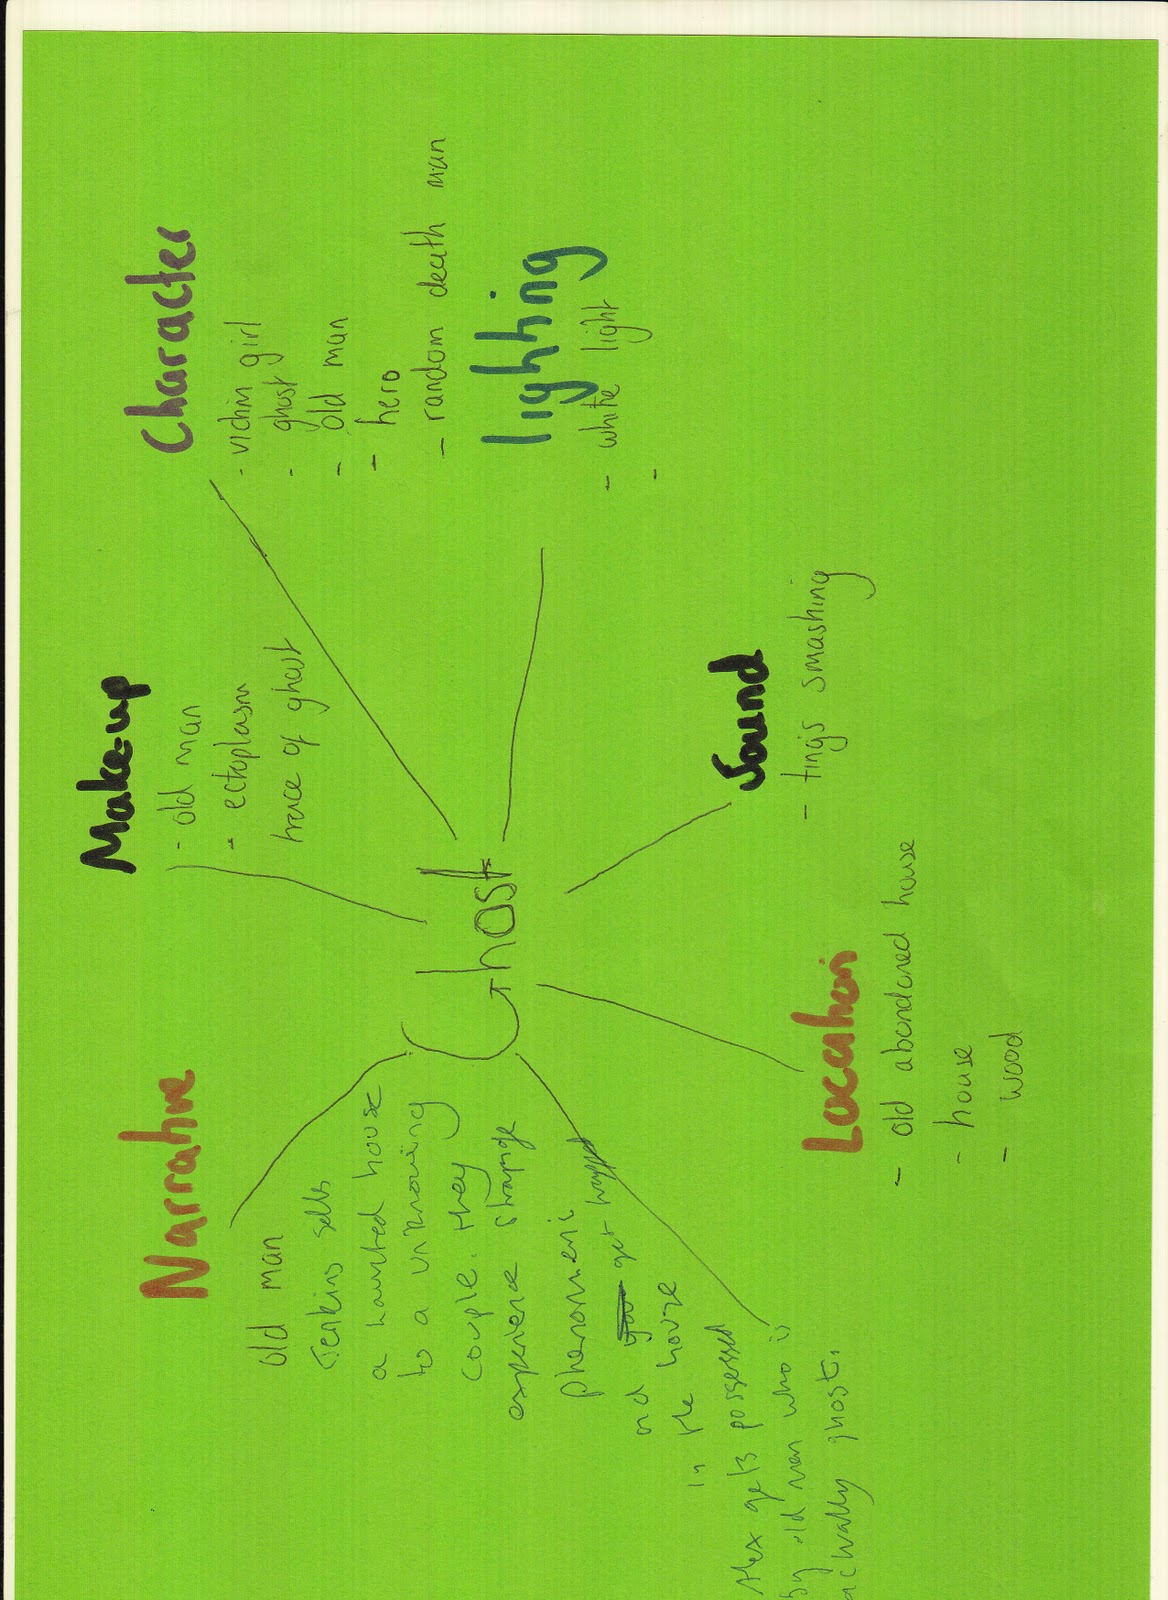 Ghost
Narrative
old man
Jenkins sells
a haunted house
to a unknowing
couple. they
experience strange
phenomeni
and get trapped
in the house
Alex gets possessed
by old man who is
actually ghost.
Make-up
- old man
- ectoplasm
trace of ghost
Character
- victim girl
- ghost
- old man
- hero
- random death man
lighting
- white light
-
Sound
- tings smashing
Location
- old abandoned house
- house
- wood